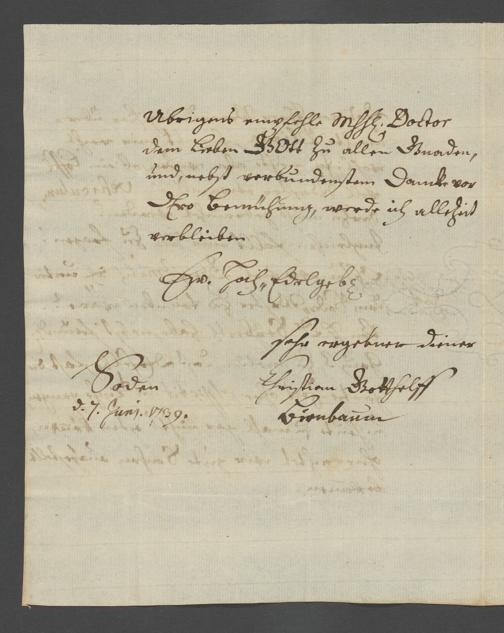 Ubrigens empfehle MhhE. Doctor
dem Lieben GOtt zu allen Gnaden,
und, nebst verbundenstem Dancke vor
Dero Bemühung, werde ich allezeit
verbleiben
Ew. HochEdelgeb.
sehr ergebner diener
Soden
Christian Gotthelff
d. 7. Juni. 1739.
Birnbaum